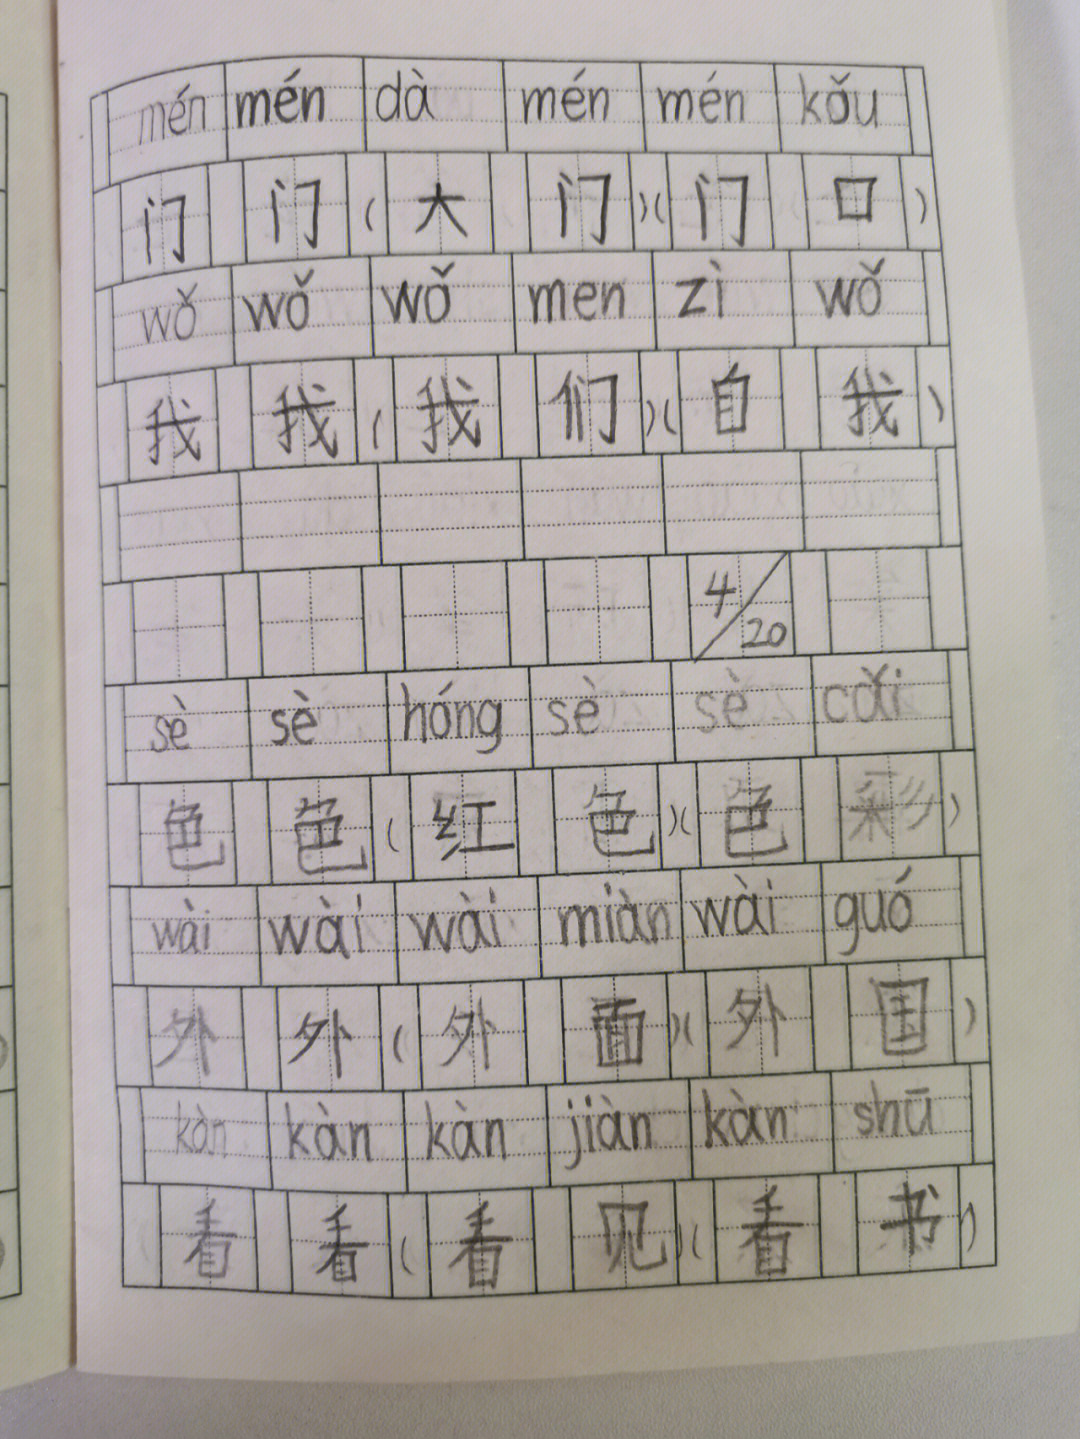 mén mén dà mén mén kǒu
门 门 (大 门)(门 口)
wǒ wǒ wǒ men zì wǒ
我 我 (我 们)(自 我)
4/20
sè sè hóng sè sè cǎi
色 色 (红 色)(色 彩)
wài wài wài miàn wài guó
外 外 (外 面)(外 国)
kàn kàn kàn jiàn kàn shū
看 看 (看 见)(看 书)